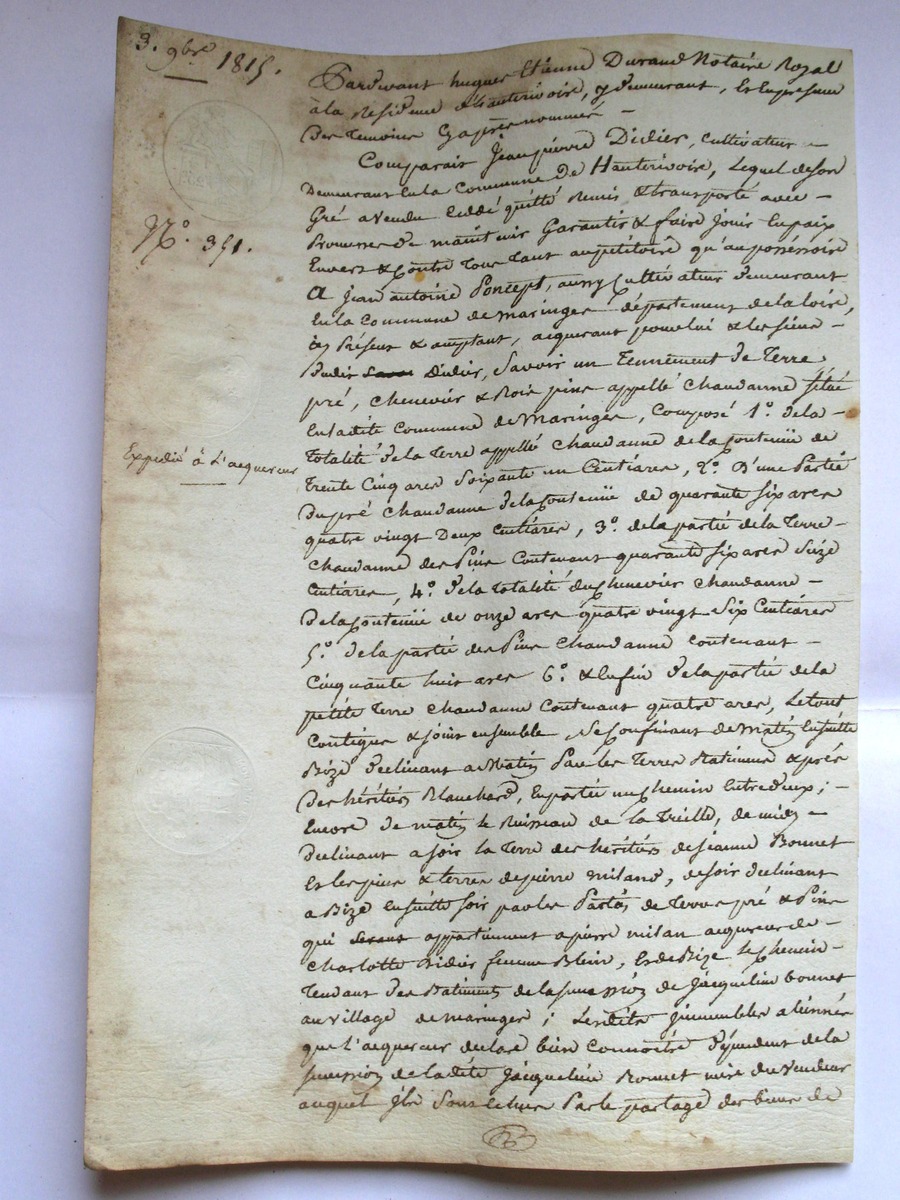 3. 9bre 1815.
Pardevant hugues Etienne Durand Notaire Royal
à la Résidence d'hauterivoire, y demeurant, Et En présence
des temoins Cy après nommés –
Comparait Jean pierre Didier, Cultivateur –
Demeurant En la Commune de Hauterivoire, Lequel de Son
N.° 351.
Gré a vendu Cédé quitté Remis & transporté avec –
Promesse de maintenir Garantir & faire Jouir En paix
Envers & Contre Tous tant au pétitoire qu'au possessoire
A Jean antoine Poncept, aussy Cultivateur demeurant
En la Commune de maringes département de la Loire,
Cy Présent & acceptant, acquerant pour lui & les siens –
dudit Didier, Savoir un Tennement de Terre
pré, Chenevier & Bois pins appellé Chaudanne Situé
En ladite Commune de Maringes, Composé 1.° de la –
Expedié à L'acquereur
Totalité de la Terre appellé Chaudanne de la Contenüe de
Trente Cinq ares Soixante un Centiares, 2.° D'une Partie
du pré Chaudanne de la Contenüe de quarante Six ares
quatre vingt Deux Centiares, 3.° de la partie de la Terre –
Chaudanne des Pins Contenant quarante Six ares Seize
Centiares, 4.° de la Totalité du Chenevier Chaudanne –
De la Contenüe de onze ares quatre vingt Six Centiares
5.° de la partie des Pins Chaudanne contenant –
Cinquante huit ares 6.° & Enfin de la partie de la
petite Terre Chaudanne Contenant quatre ares, Le tout
Contigue & Joint ensemble, Se Confinant de Matin Ensuitte
Bize declinant a Matin Par les Terres & prés
des héritiers Blanchard, En partie un Chemin Entre deux; –
Encore de matin le Ruisseau de la Treille, de midy –
declinant a soir la Terre des héritiers de Jeanne Bonnet
Et les pins & terres de pierre miland, de soir declinant
a Bize Ensuitte soir par les Parties de Terres pré & Pins
qui appartiennent a pierre milan acquereur de –
Charlotte Didier femme Blein, Et de Bize le Chemin –
Tendant des Batiments de la succession de Jacqueline bonnet
au village de maringes; Lesdits Jmmeubles aliennés
que L'acquereur declare bien Connoitre Dépendent de la
Succession de ladite Jacqueline Bonnet mère du Vendeur
auquel Jls Sont échus Par le partage des biens de